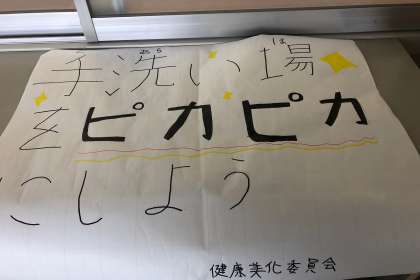 手洗い場
を ピカピカ
にしよう
健康美化委員会